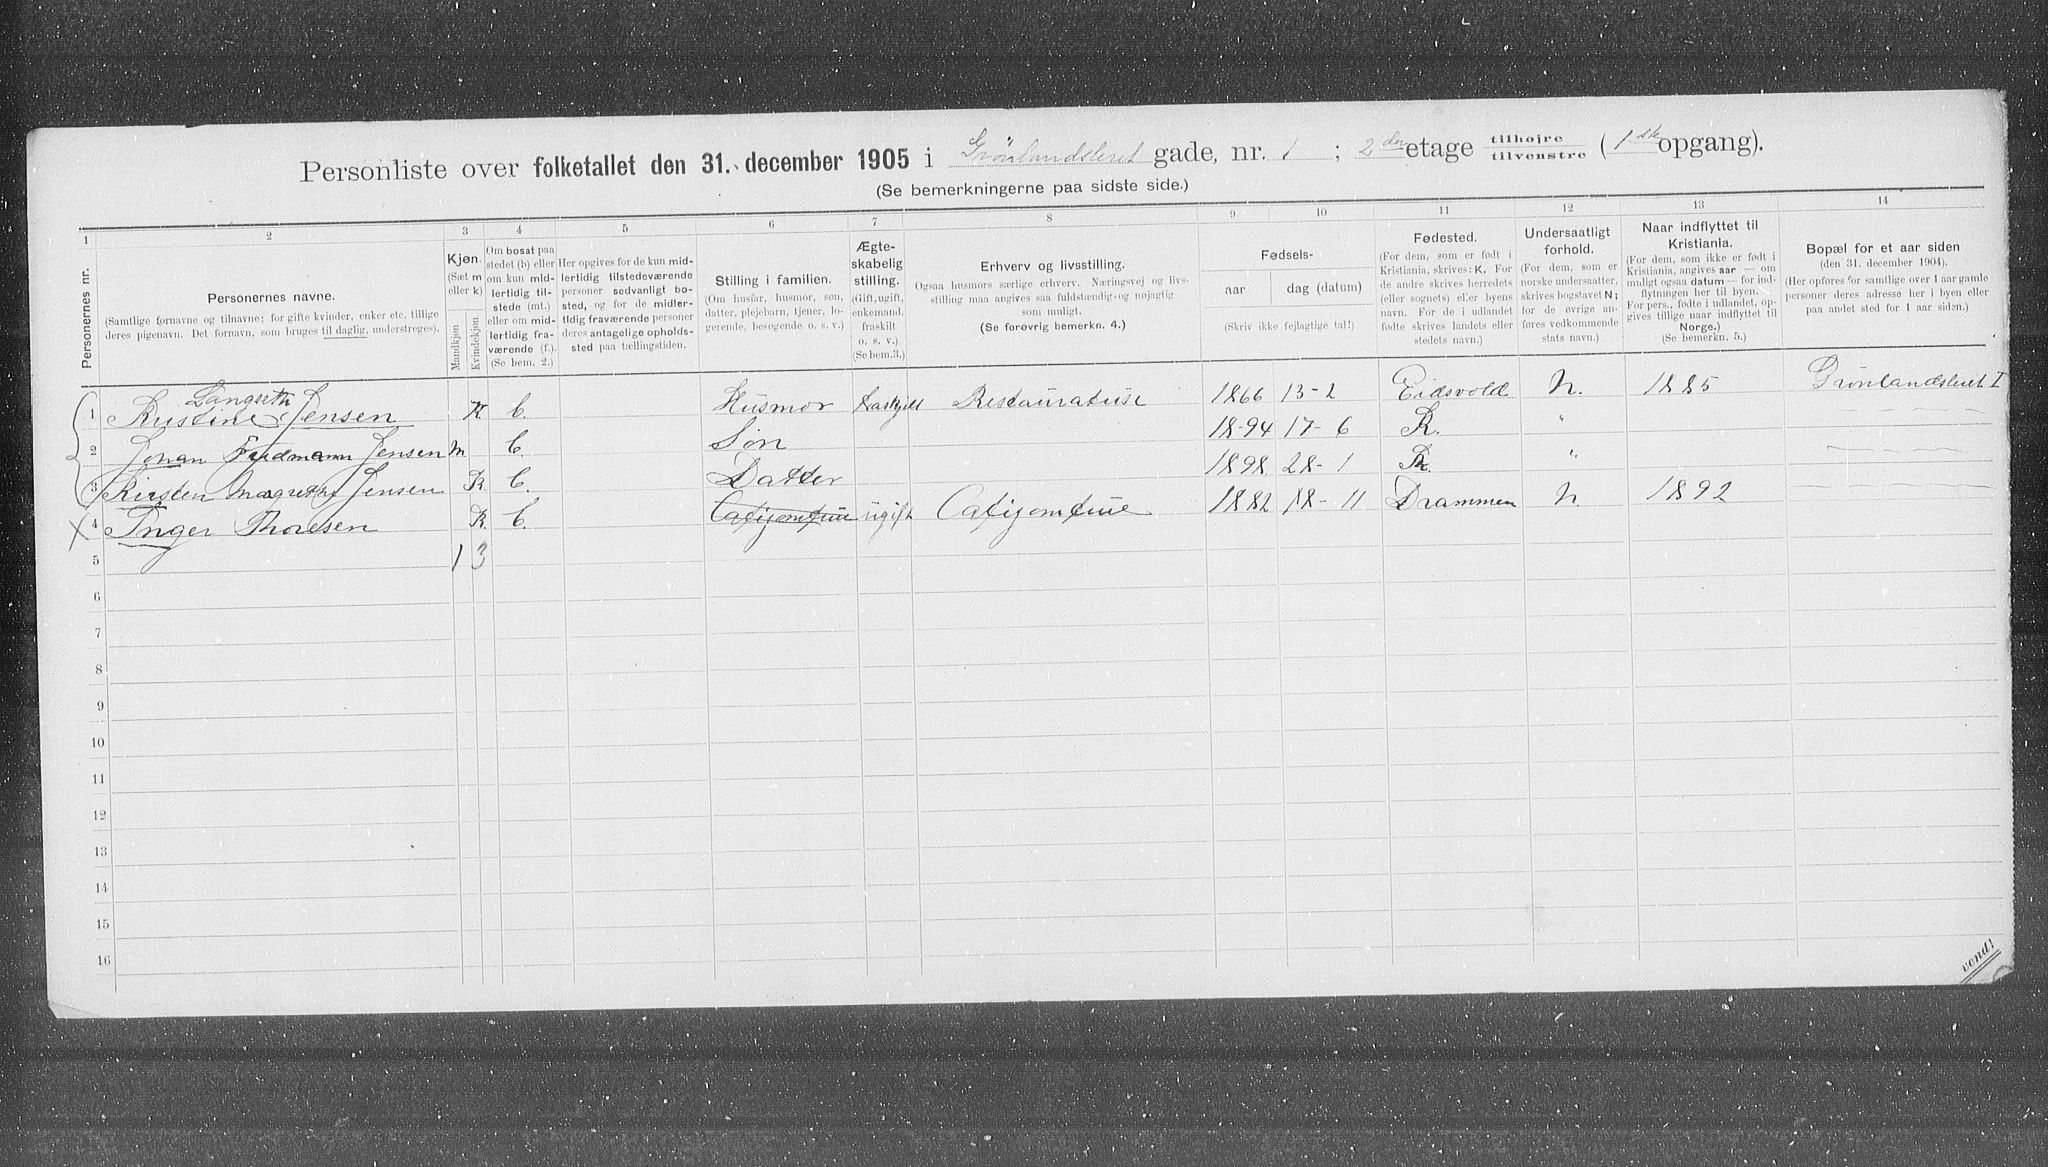 Personliste over folketallet den 31. december 1905 i Grønlandsleret gade, nr. 1 ; 2den etage tilhøjre tilvenstre (1ste opgang).
(Se bemerkningerne paa sidste side.)
1 2 3 4 5 6 7 8 9 10 11 12 13 14
Personernes nr.
Personernes navne.
(Samtlige fornavne og tilnavne; for gifte kvinder, enker etc. tillige
deres pigenavn. Det fornavn, som bruges til daglig, understreges).
Kjøn.
(Sæt m
eller k)
Mandkjøn
Kvindekjøn
Om bosat paa
stedet (b) eller
om kun mid-
lertidig til-
stede (mt.)
eller om mid-
lertidig fra-
værende (f.).
(Se bem. 2.)
Her opgives for de kun mid-
lertidig tilstedeværende
personer sedvanligt bo-
sted, og for de midler-
tidig fraværende personer
deres antagelige opholds-
sted paa tællingstiden.
Stilling i familien.
(Om husfar, husmor, søn,
datter, plejebarn, tjener, lo-
gerende, besøgende o. s. v.)
Ægte-
skabelig
stilling.
(Gift, ugift,
enkemand.
fraskilt
o. s. v.)
(Se bem.3.)
Erhverv og livsstilling.
Ogsaa husmors særlige erhverv. Næringsvej og livs-
stilling maa angives saa fuldstændig og nøjagtig
som muligt.
(Se forøvrig bemerkn. 4.)
Fødsels-
aar dag (datum)
(Skriv ikke fejlagtige tal!)
Fødested.
(For dem, som er født i
Kristiania, skrives: K. For
de andre skrives herredets
(eller sognets) eller byens
navn. For de i udlandet
fødte skrives landets eller
stedets navn.)
Undersaatligt
forhold.
(For dem, som er
norske undersaatter,
skrives bogstavet N;
for de øvrige an-
føres vedkommende
stats navn.)
Naar indflyttet til
Kristiania.
(For dem, som ikke er født i
Kristiania, angives aar — om
muligt ogsaa datum — for ind-
flytningen her til byen.
For pers., fødte i udlandet, op-
gives tillige naar indflyttet til
Norge.)
(Se bemerkn. 5.)
Bopæl for et aar siden
(den 31. december 1904).
(Her opføres for samtlige over 1 aar gamle
personer deres adresse her i byen eller
paa andet sted for 1 aar siden.)
Langseth
1 Kristine Jensen K b. Husmor fraskilt Restauratrise 1866 13-2 Eidsvold N. 1885 Grønlandsleret 1
2 Johan Fridmann Jensen m b. Søn 1894 17-6 K. "
3 Kirsten Magrethe Jensen K b. Datter 1898 28-1 K. "
4 Inger Thoresen K. b. ugift 1882 18-11 Drammen N. 1892
5 1 3
6
7
8
9
10
11
12
13
14
15
16
vend!